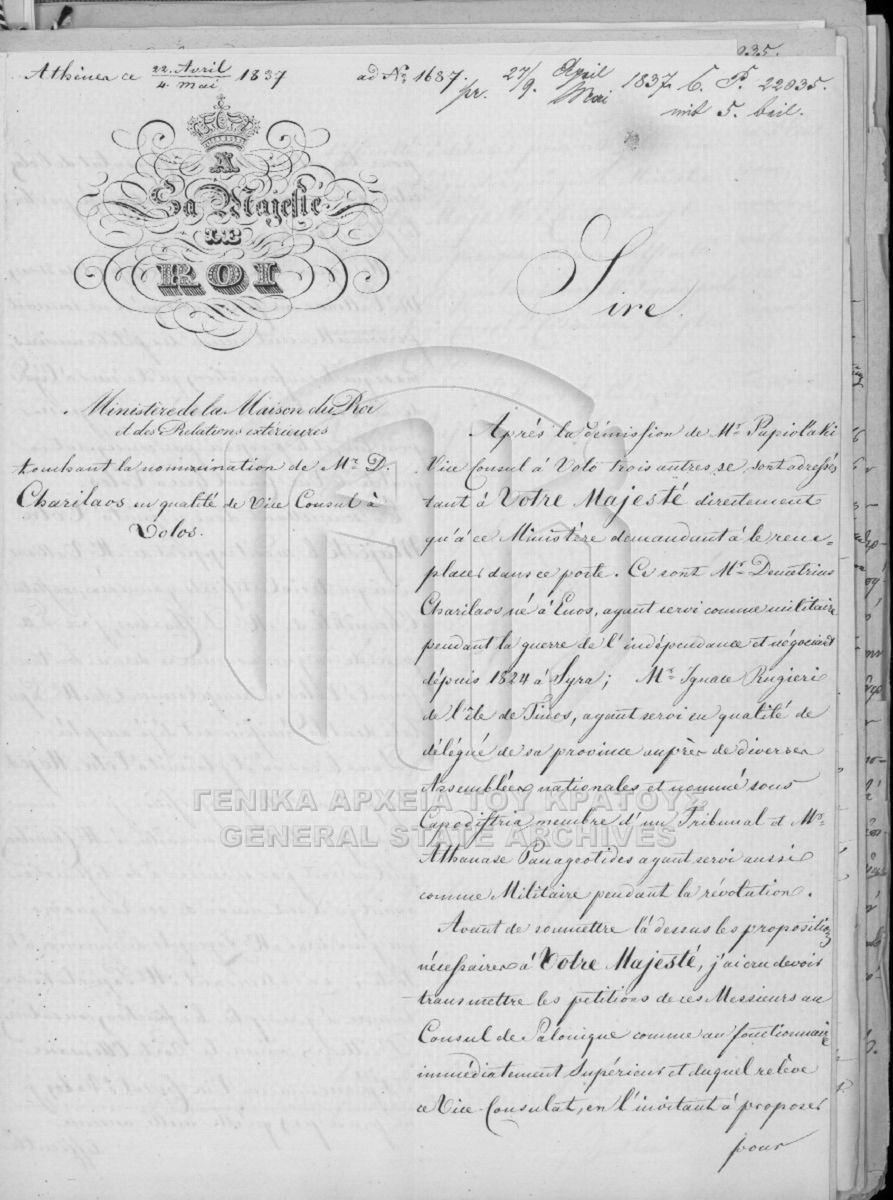 235.
Athènes ce 22. Avril / 4. Mai 1837
ad No. 1687.
pr. 27/9. April / Mai 1837. C. P. 22035.
mit 5. beil.
A
Sa Majesté
LE
ROI
Sire.
Ministère de la Maison du Roi
et des Relations extérieures
touchant la nomination de Mr. D.
Charilaos en qualité de Vice Consul à
Volos.
Après la démission de Mr. Papiolaki
Vice Consul à Volo trois autres se sont adressés
tant à Votre Majesté directement
qu'à ce Ministère demandant à le rem=
placer dans ce poste. Ce sont Mr. Demetrius
Charilaos né à Enos, ayant servi comme militaire
pendant la guerre de l'indépendance et négociant
dépuis 1824 à Syra; Mr. Ignace Rugieri
de l'île de Tinos, ayant servi en qualité de
délégué de sa province auprès de diverses
Assemblées nationales et nommé sous
Capodistria membre d'un Tribunal et Mr.
Athanase Panageotides ayant servi aussi
comme Militaire pendant la révolution.
Avant de soumettre là dessus les propositions
nécessaires à Votre Majesté, j'ai cru devoir
transmettre les petitions de ces Messieurs au
Consul de Salonique comme au fonctionnaire
immédiatement Supérieur et duquel relève
ce Vice Consulat, en l'invitant à proposer
pour
ΓΕΝΙΚΑ ΑΡΧΕΙΑ ΤΟΥ ΚΡΑΤΟΥΣ
GENERAL STATE ARCHIVES